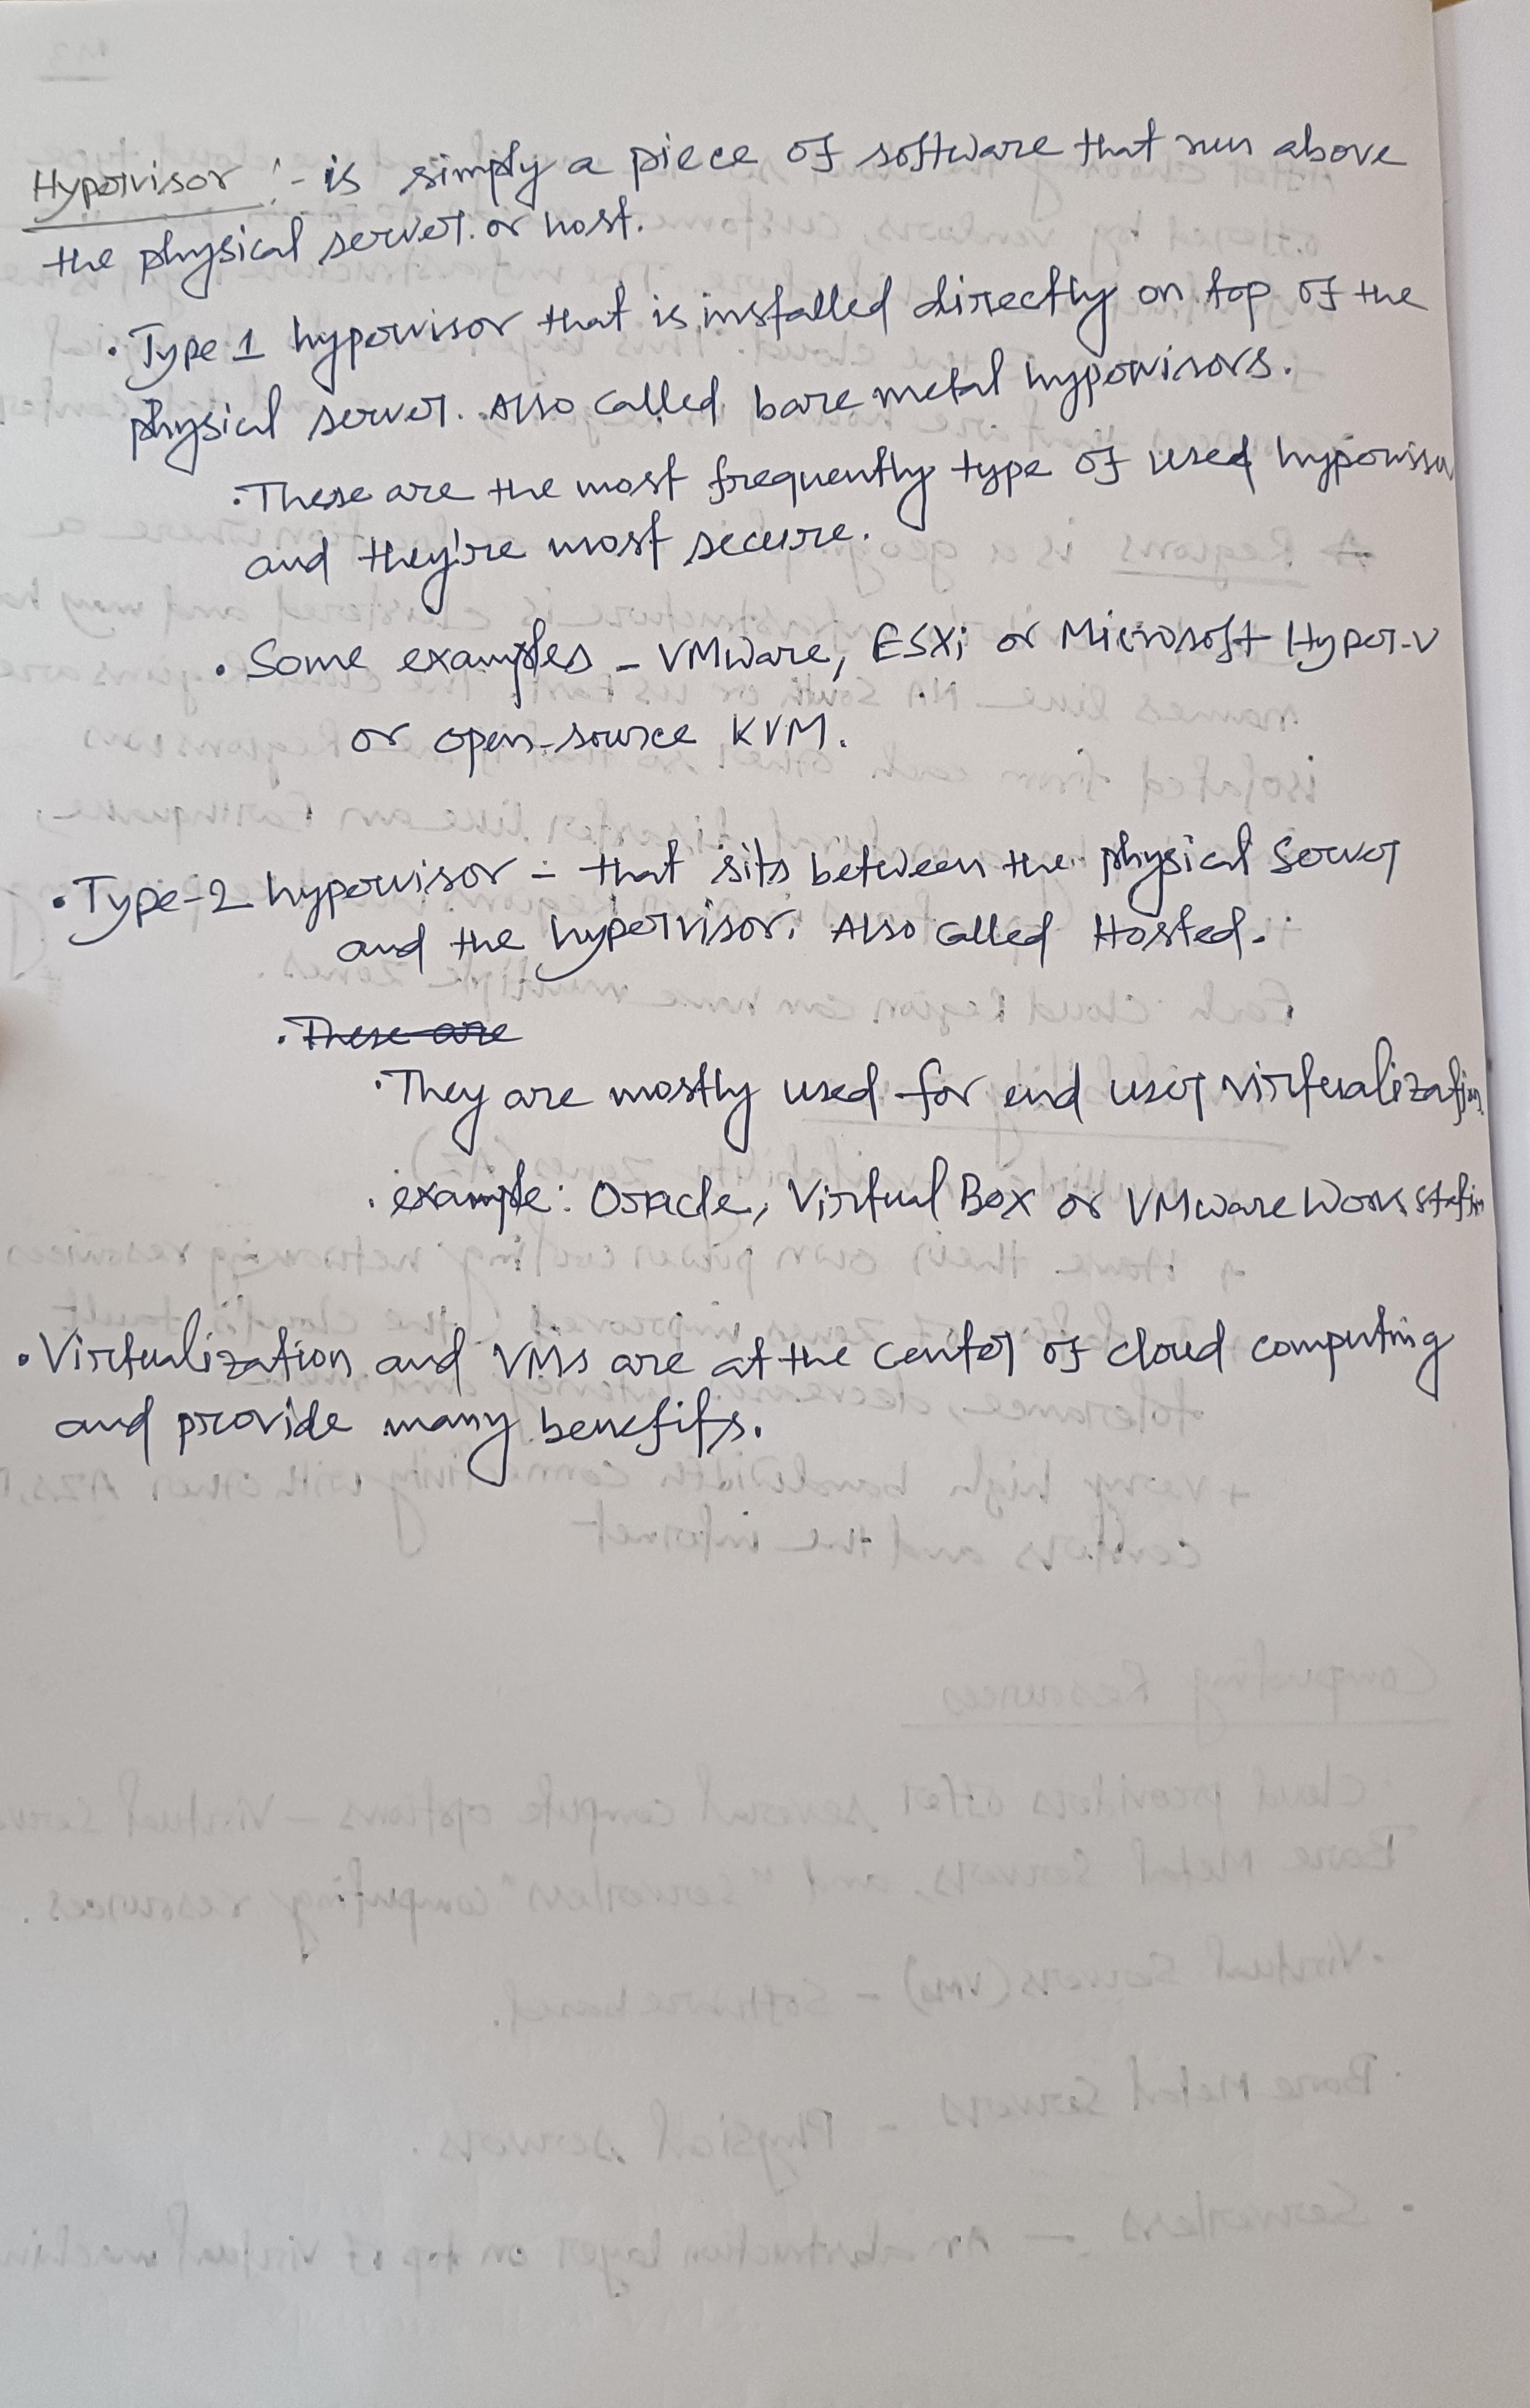 Hypervisor :- is simply a piece of software that run above
the physical server. or host.
• Type 1 hypervisor that is installed directly on top of the
physical server. Also called bare metal hypervisors.
• These are the most frequently type of used hypervisor
and they're most secure.
• Some examples - VMware, ESXi or Microsoft Hyper-V
or open-source KVM.
• Type-2 hypervisor - that sits between the physical server
and the hypervisor. Also called Hosted.
• These are
• They are mostly used for end user virtualization
• example: Oracle, Virtual Box or VMware Workstation
• Virtualization and VMs are at the center of cloud computing
and provide many benefits.